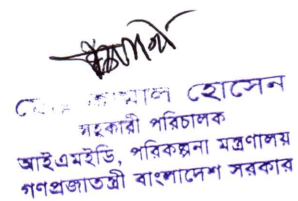 হোসেন
সহকারী পরিচালক
আইএমইডি, পরিকল্পনা মন্ত্রণালয়
গণপ্রজাতন্ত্রী বাংলাদেশ সরকার